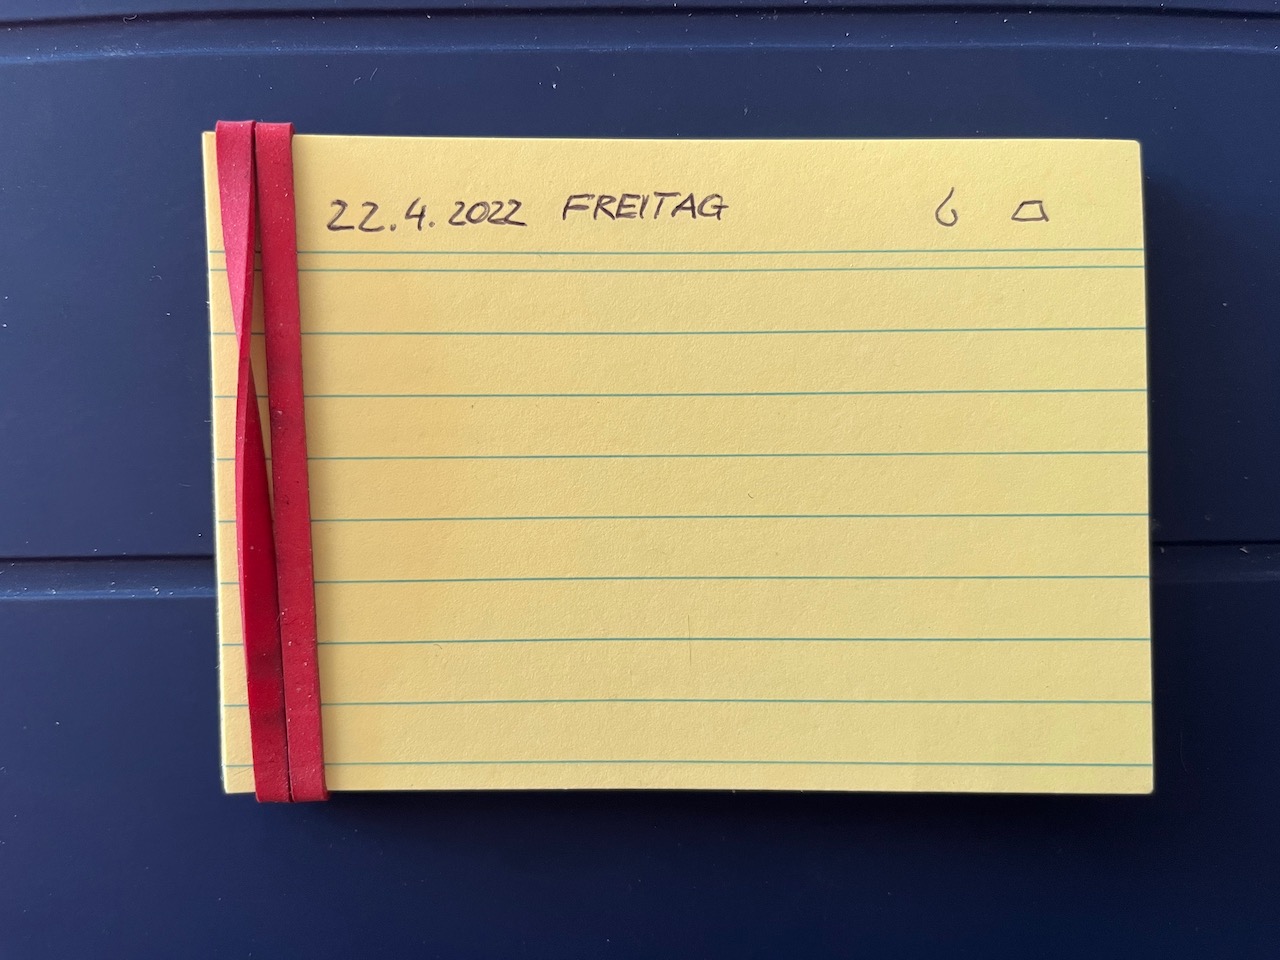 22.4.2022 FREITAG